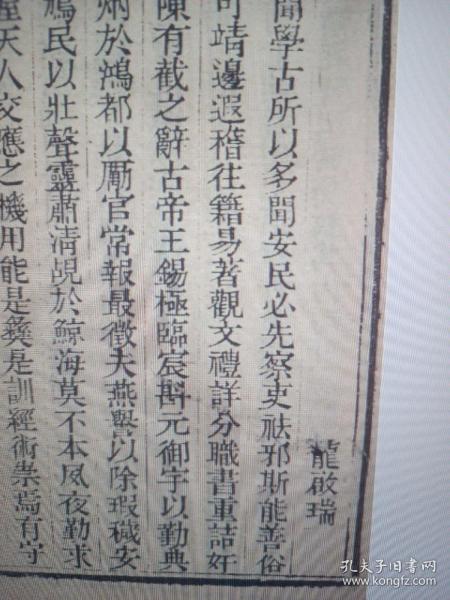 龍啟瑞
聞學古所以多聞安民必先察吏祛邪斯能善俗
可靖邊遐稽往籍易著觀文禮詳分職書重詰奸
陳有截之辭古帝王錫極臨宸斟元御宇以勤典
炳於鴻都以勵官常報最徵夫燕譽以除瑕穢安
鳩民以壯聲靈肅清覘於鯨海莫不本夙夜勤求
天人交應之機用能是彝是訓經術崇焉有守
孔夫子旧书网
www.kongfz.com